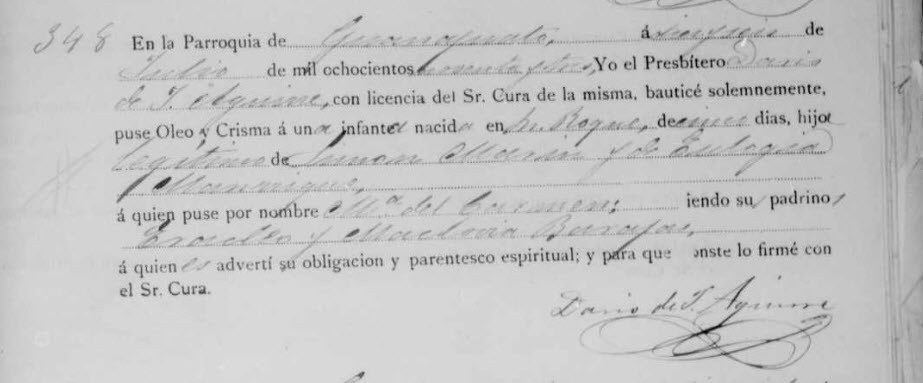 348 En la Parroquia de Guanajuato, á de
Julio de mil ochocientos noventa y tres, Yo el Presbítero Dario
de J. Aguirre, con licencia del Sr. Cura de la misma, bauticé solemnemente,
puse Oleo y Crisma á una infanta nacida en S. Roque, de cinco dias, hija
legítima de Simon Marin y de Eulogia
Manrique,
á quien puse por nombre Ma. del Carmen; iendo su padrinos
y Maclovia Barajas,
á quienes advertí su obligacion y parentesco espiritual; y para que onste lo firmé con
el Sr. Cura.
Dario de J. Aguirre